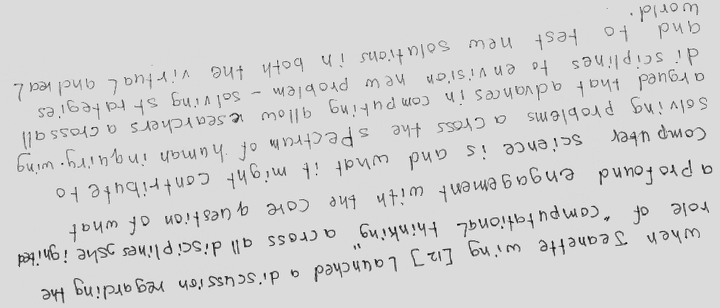 When Jeanette wing [12] Launched a discussion regarding the
role of "computational thinking" across all disciplines, she ignited
a profound engagement with the core question of what
computer science is and what it might contribute to
Solving problems across the spectrum of human inquiry. wing
argued that advances in computing allow researchers across all
disciplines to envision new problem - solving strategies
and to test new solutions in both the virtual and real
world.